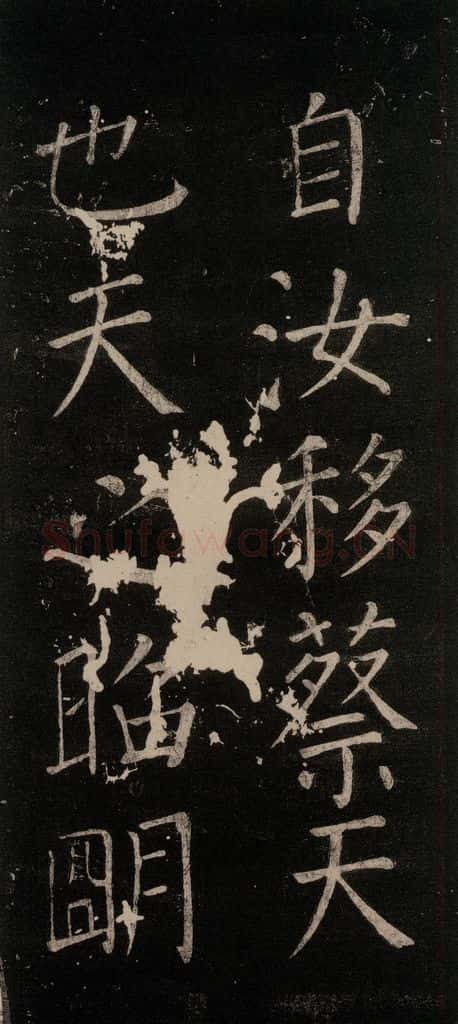 自汝移蔡天
也天之昭明
Shufawang.CN